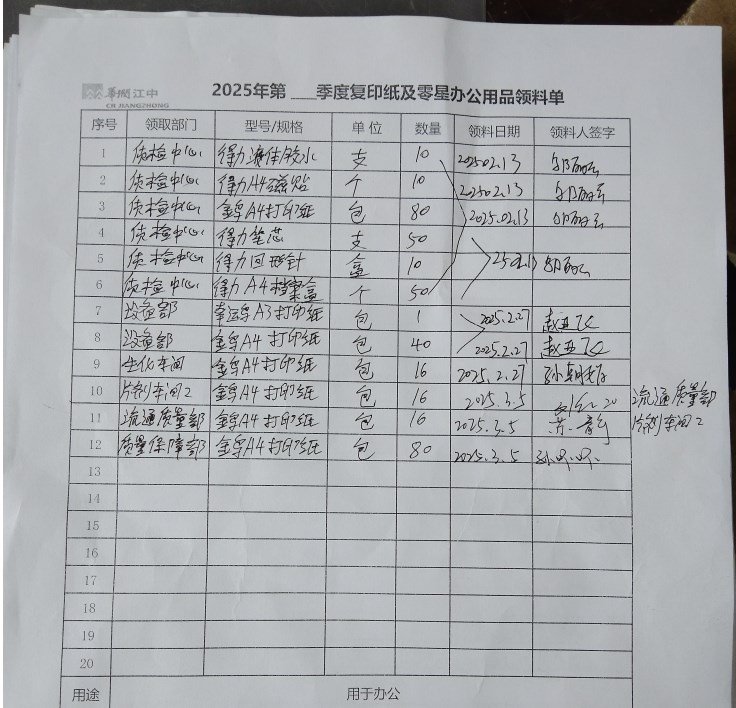 華潤江中
CR JIANGZHONG
2025年第___季度复印纸及零星办公用品领料单
序号 领取部门 型号/规格 单位 数量 领料日期 领料人签字
1 质检中心 得力液体胶水 支 10 2025.02.13
2 质检中心 得力A4磁贴 个 10 2025.02.13
3 质检中心 金孚A4打印纸 包 80 2025.02.13
4 质检中心 得力笔芯 支 50
5 质检中心 得力回形针 盒 10
6 质检中心 得力A4档案盒 个 50
7 设备部 A3打印纸 包 1 2025.2.27
8 设备部 金孚A4打印纸 包 40 2025.2.27
9 生化车间 金孚A4打印纸 包 16 2025.2.27
10 片剂车间2 金孚A4打印纸 包 16 2025.3.5 流通质量部
11 流通质量部 金孚A4打印纸 包 16 2025.3.5 片剂车间2
12 质量保障部 金孚A4打印纸 包 80 2025.3.5
13
14
15
16
17
18
19
20
用途 用于办公